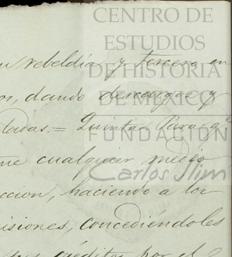 CENTRO DE
ESTUDIOS
DE HISTORIA
DE MÉXICO
FUNDACIÓN
Carlos Slim
rebeldia y tercera en
os, dando descargos y
tadas = Quinta. Para q.e
me cualquier medio
ccion, haciendo a los
isiones, concediendoles
creditos por el